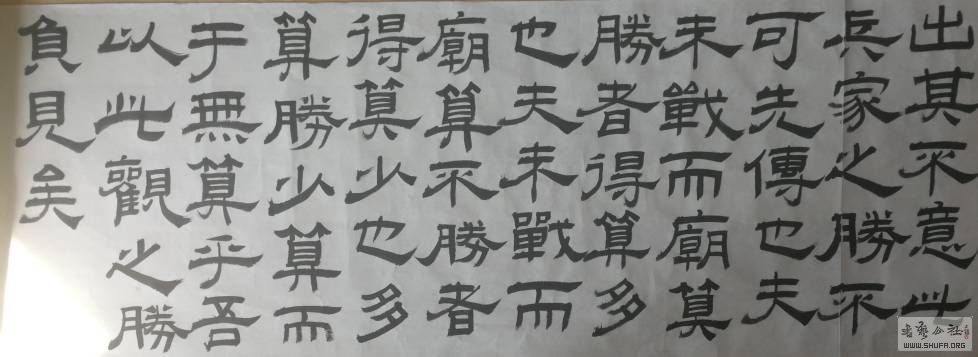 出其不意此
兵家之勝不
可先傳也夫
未戰而廟算
勝者得算多
也夫未戰而
廟算不勝者
得算少也多
算勝少算而
于無算乎吾
以此觀之勝
負見矣
WWW.SHUFA.ORG